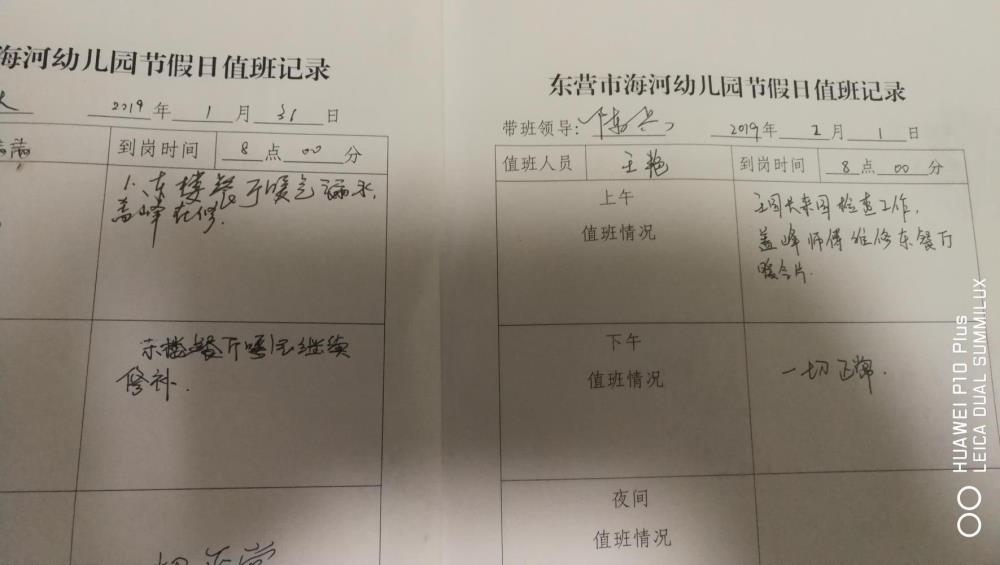 海河幼儿园节假日值班记录
2019年 1月 31日
到岗时间 8点 00分
1、东楼餐厅暖气漏水,
盖峰在修.
东楼餐厅暖气继续
修补.
一切正常
东营市海河幼儿园节假日值班记录
带班领导: 2019年 2月 1日
值班人员 王艳 到岗时间 8点 00分
上午
值班情况
王园长来园检查工作,
盖峰师傅维修东餐厅
暖气片.
下午
值班情况
一切正常.
夜间
值班情况
HUAWEI P10 Plus
LEICA DUAL SUMMILUX